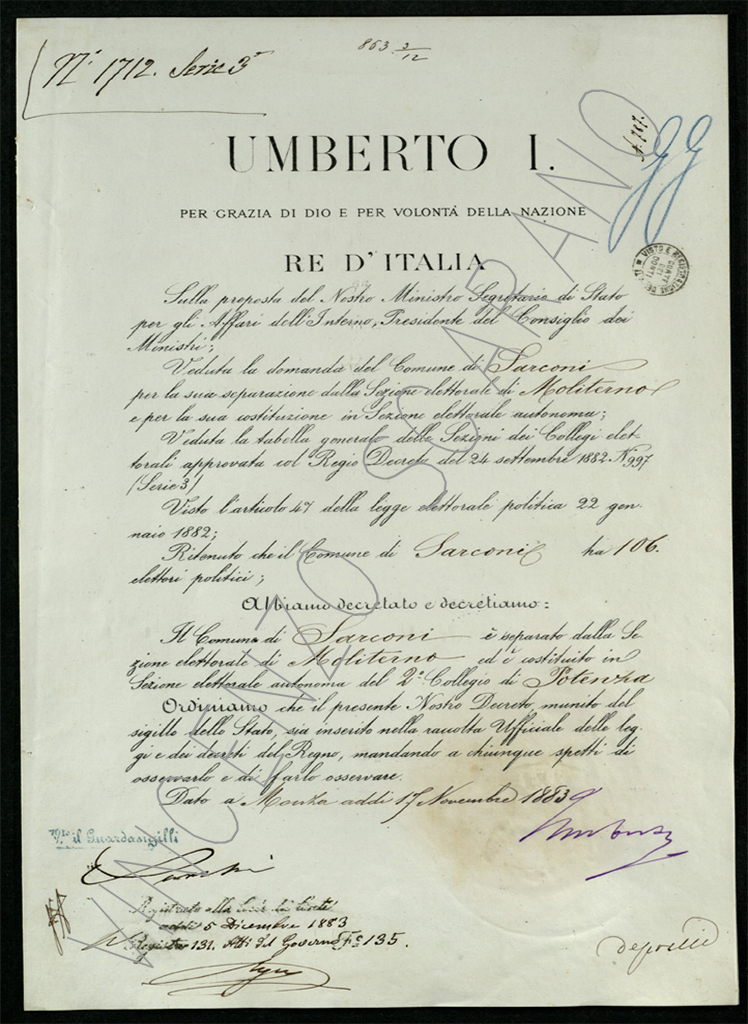 N.° 1712. Serie 3ª
863 3/12
A. 767.
UMBERTO I.
PER GRAZIA DI DIO E PER VOLONTÀ DELLA NAZIONE
RE D'ITALIA
VISTO E REGISTRATO
CORTE DEI CONTI
Sulla proposta del Nostro Ministro Segretario di Stato
per gli Affari dell'Interno, Presidente del Consiglio dei
Ministri;
Veduta la domanda del Comune di Sarconi
per la sua separazione dalla Sezione elettorale di Moliterno
e per la sua costituzione in Sezione elettorale autonoma;
Veduta la tabella generale delle Sezioni dei Collegi elet-
torali approvata col Regio Decreto del 24 settembre 1882 N.° 997
(Serie 3ª)
Visto l'articolo 47 della legge elettorale politica 22 gen-
naio 1882;
Ritenuto che il Comune di Sarconi ha 106.
elettori politici;
Abbiamo decretato e decretiamo:
Il Comune di Sarconi è separato dalla Se-
zione elettorale di Moliterno ed è costituito in
Sezione elettorale autonoma del 2° Collegio di Potenza
Ordiniamo che il presente Nostro Decreto, munito del
sigillo dello Stato, sia inserito nella raccolta Ufficiale delle leg-
gi e dei decreti del Regno, mandando a chiunque spetti di
osservarlo e di farlo osservare.
Dato a Monza addì 17 Novembre 1883
Umberto
V.to il Guardasigilli
Registrato alla Corte dei Conti
addì 5 Dicembre 1883
Registro 131. Atti del Governo F.° 135.
Depretis
VINCENZO SCARANO